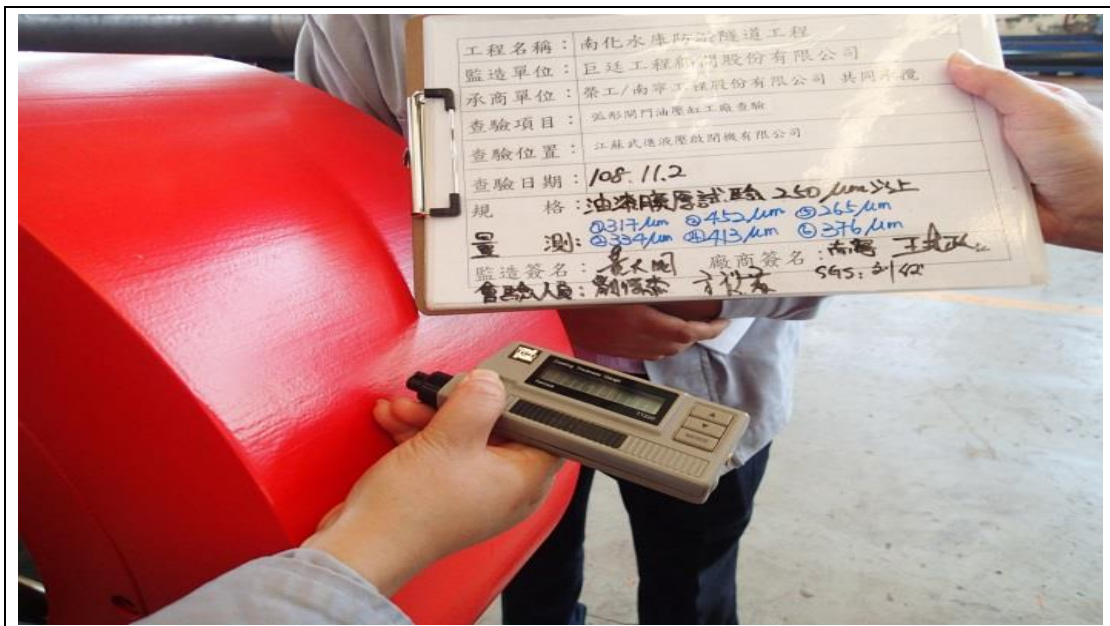 工程名稱：南化水庫防淤隧道工程
監造單位：巨廷工程顧問股份有限公司
承商單位：榮工/南寧工程股份有限公司 共同承攬
查驗項目：弧形閘門油壓缸工廠查驗
查驗位置：江蘇武進液壓啟閉機有限公司
查驗日期：108.11.2
規 格：油漆膜厚試驗 250μm以上
量 測：①317μm ②452μm ⑤265μm
②334μm ④413μm ⑥376μm
監造簽名： 廠商簽名：南寧
會驗人員： SGS：
Coating Thickness Gauge